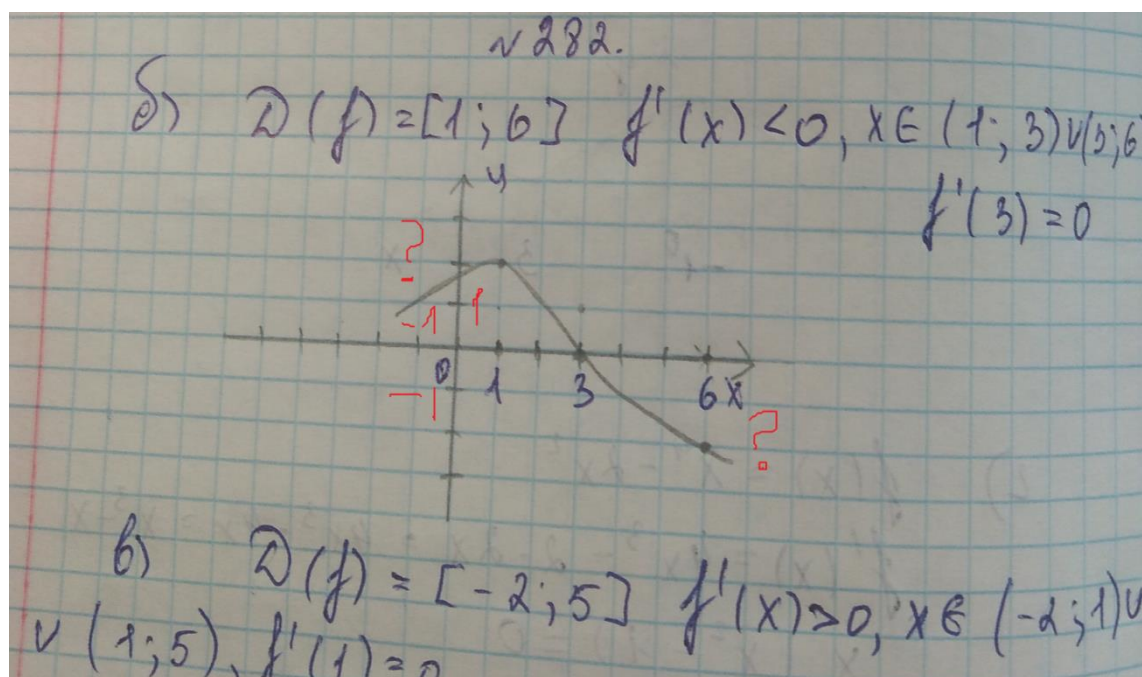 № 282.
б) D(f) = [1; 6] f'(x) < 0, x ∈ (1; 3) ∪ (3; 6
f'(3) = 0
y
?
-1 1
0 1 3 6 x
-1
?
в) D(f) = [-2; 5] f'(x) > 0, x ∈ (-2; 1) ∪
∪ (1; 5), f'(1) = 0